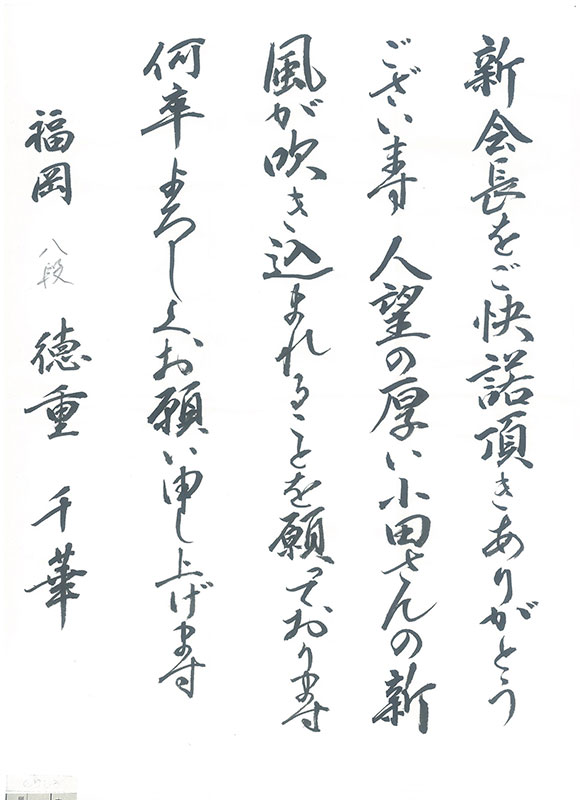 新会長をご快諾頂きありがとう
ございます 人望の厚い小田さんの新
風が吹き込まれることを願っております
何卒よろしくお願い申し上げます
福岡 八段 徳重 千華